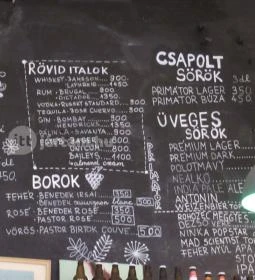 RÖVID ITALOK
WHISKEY: JAMESON 900.
1350.
RUM: BRUGAL 900.
DICTADOR 1350.
VODKA: RUSSKY STANDARD 900.
TEQUILA: JOSE CUERVO 900.
GIN: BOMBAY 900.
HENDRICKS 1350.
PÁLINKA: SAVANYA 900.
JÄGER 900.
UNICUM 900.
BAILEYS
BOROK
FEHÉR: BENEDEK IRSAI 350
BENEDEK sauvignon blanc 500
ROSÉ: BENEDEK ROSÉ 350
PASTOR ROSÉ 500
VÖRÖS: PASTOR BIRTOK CUVÉE 500
CSAPOLT
SÖRÖK
3dl
PRIMÁTOR LAGER 350
PRIMÁTOR BÚZA 450
ÜVEGES
SÖRÖK
PREMIUM LAGER
PREMIUM DARK
POLOTMAVÝ
NEALKO
INDIA PALE ALE
ANTONÍN
ROHOZEC
NINKA POPSTAR
MAD SCIENTIST
FEHÉR NYÚL